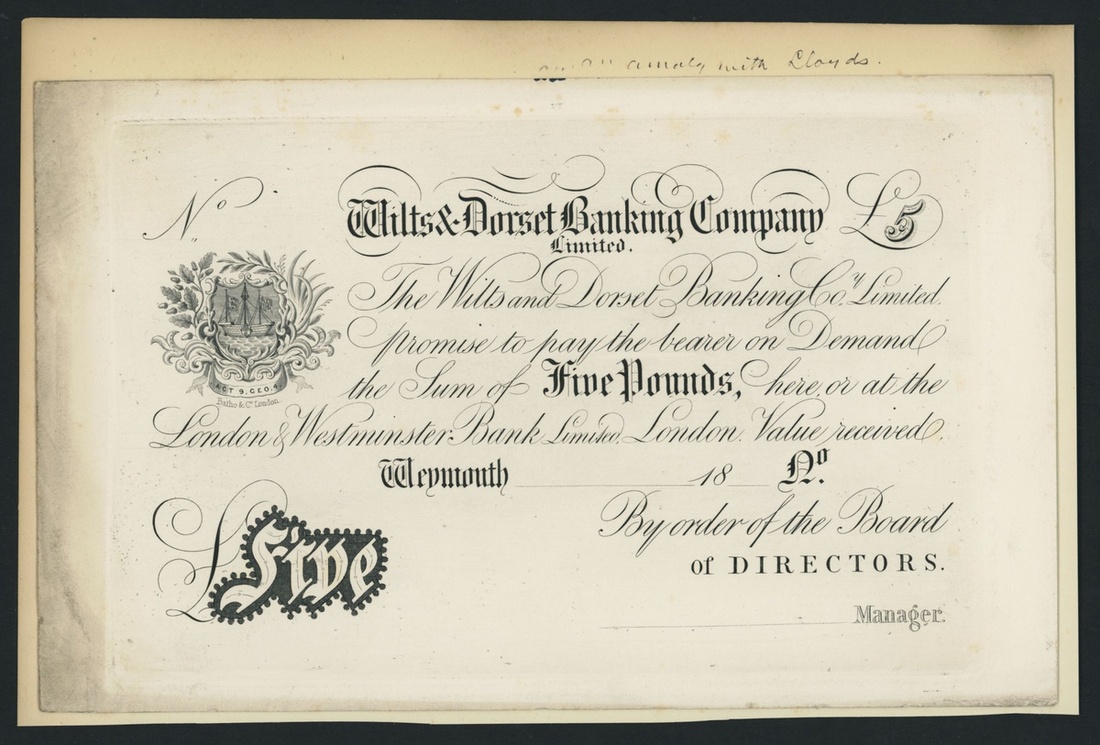 with Lloyds.
Nº
Wilts & Dorset Banking Company
£5
Limited.
The Wilts and Dorset Banking Co.y Limited.
promise to pay the bearer on Demand
the Sum of Five Pounds, here, or at the
London & Westminster Bank Limited, London. Value received.
ACT 9. GEO. 4.
Batho & Co. London.
Weymouth 18 Nº.
By order of the Board
of DIRECTORS.
£Five
Manager.